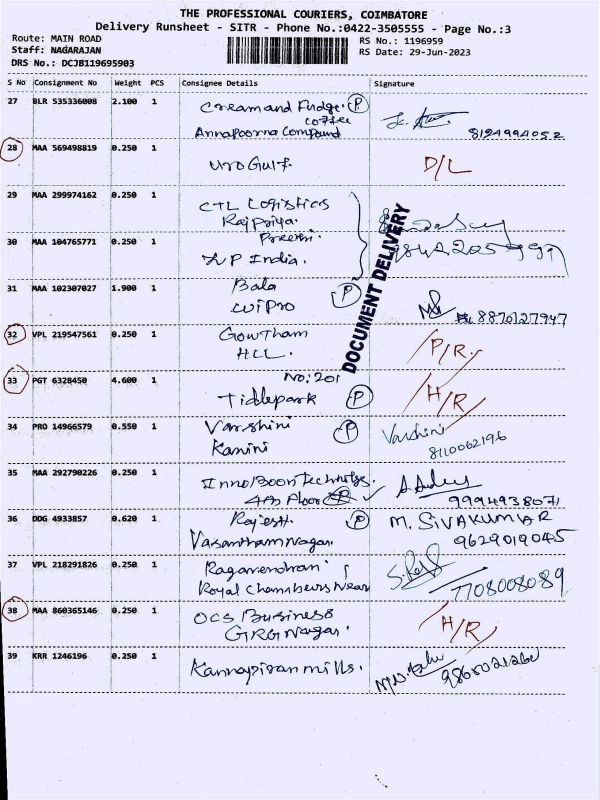 THE PROFESSIONAL COURIERS, COIMBATORE
Delivery Runsheet - SITR - Phone No.:0422-3505555 - Page No.:3
Route: MAIN ROAD
RS No.: 1196959
Staff: NAGARAJAN
RS Date: 29-Jun-2023
DRS No.: DCJB119695903
S No Consignment No Weight PCS Consignee Details Signature
27 BLR 535336008 2.100 1 Cream and Fudge. P
coffee
Annapoorna Compound 8124994052
28 MAA 569498819 0.250 1
Uro Gulf. D/L
29 MAA 299974162 0.250 1 CTL Logistics
Rajpriya.
30 MAA 104765771 0.250 1 Preethi.
India.
DOCUMENT DELIVERY
31 MAA 102307027 1.900 1 Bala P
Wipro 8870127947
32 VPL 219547561 0.250 1 Gowtham P/R.
HCL.
33 PGT 6328450 4.600 1 No: 201
Tidelpark P H/R
34 PRO 14966579 0.550 1 Varshini P Varshini
Kanini 8110062196
35 MAA 292790226 0.250 1
4th Floor 9994938071
36 DDG 4933857 0.620 1 Rajesh. P M. SIVAKUMAR
Vasantham Nagar. 9629019045
37 VPL 218291826 0.250 1 Ragavendran
Royal Chambers Near 7708008089
38 MAA 860365146 0.250 1 OCS Business H/R
GRG Nagar.
39 KRR 1246196 0.250 1
Kannapiran mills.